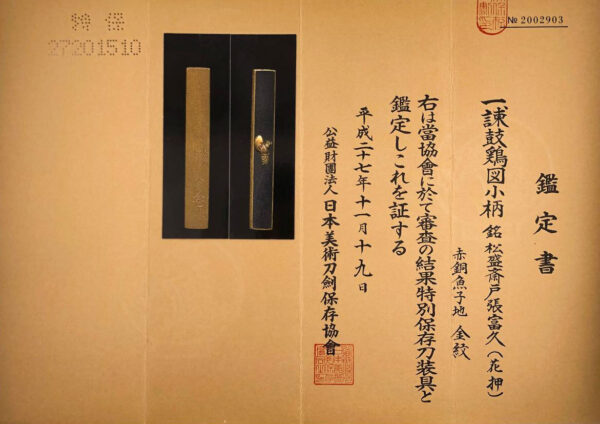 鑑定書
一、諌鼓鶏図小柄 銘 松盛斎戸張富久(花押)
赤銅魚子地 金紋
右は當協會に於て審査の結果特別保存刀装具と
鑑定しこれを証する
平成二十七年十一月十九日
公益財團法人 日本美術刀劍保存協會
№ 2002903
特保
27201510